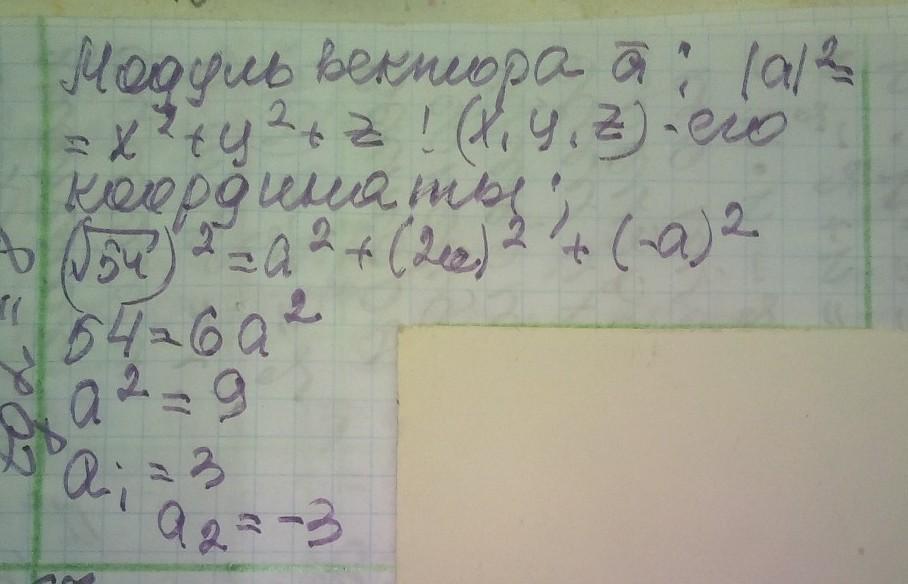 Модуль вектора a̅ ; |a|²=
= x² + y² + z ! (x, y, z) - его
координаты ;
(√54)² = a² + (2a)² + (-a)²
54 = 6a²
a² = 9
a₁ = 3
a₂ = -3